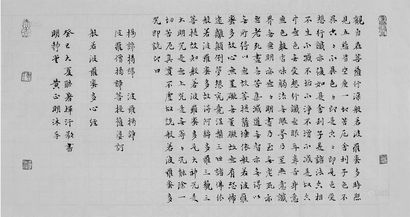 觀自在菩薩行深般若波羅蜜多時照
見五蘊皆空度一切苦厄舍利子色不
異空空不異色色即是空空即是色受
想行識亦復如是舍利子是諸法空相
不生不滅不垢不淨不增不減是故空
中無色無受想行識無眼耳鼻舌身意
無色聲香味觸法無眼界乃至無意識
界無無明亦無無明盡乃至無老死亦
無老死盡無苦集滅道無智亦無得以
無所得故菩提薩埵依般若波羅
蜜多故心無罣礙無罣礙故無有恐怖
遠離顛倒夢想究竟涅槃三世諸佛依
般若波羅蜜多故得阿耨多羅三藐三
菩提故知般若波羅蜜多是大神咒是
大明咒是無上咒是無等等咒能除一
切苦真實不虛故說般若波羅蜜多
咒即說咒曰
揭諦揭諦 波羅揭諦
波羅僧揭諦菩提薩婆訶
般若波羅蜜多心經
癸巳大夏 敬書
明靜堂 黃正明沐手